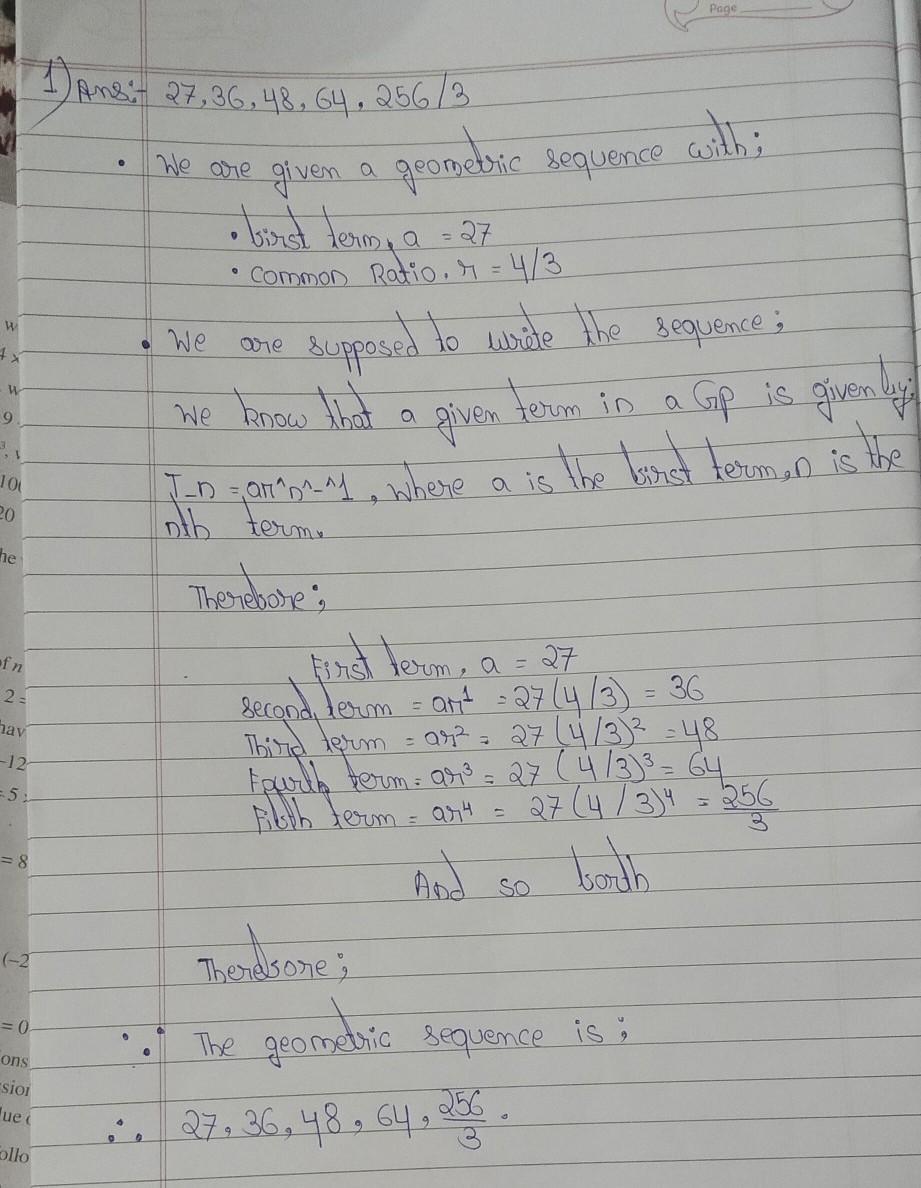 Page
1) Ans:- 27, 36, 48, 64, 256/3
• We are given a geometric sequence with;
• first term, a = 27
• common Ratio, r = 4/3
• We are supposed to write the sequence;
We know that a given term in a Gp is given by;
T_n = ar^n^-^1, where a is the first term, n is the
nth term.
Therefore;
First term, a = 27
Second term = ar¹ = 27(4/3) = 36
Third term = ar² = 27(4/3)² = 48
Fourth term = ar³ = 27(4/3)³ = 64
Fifth term = ar⁴ = 27(4/3)⁴ = 256/3
And so forth
Therefore;
∵ The geometric sequence is;
∴ 27, 36, 48, 64, 256/3.
w
4 x
w
9
10
20
he
of n
2 =
hav
-12
= 8
(-2
= 0
ons
sion
lue
ollo